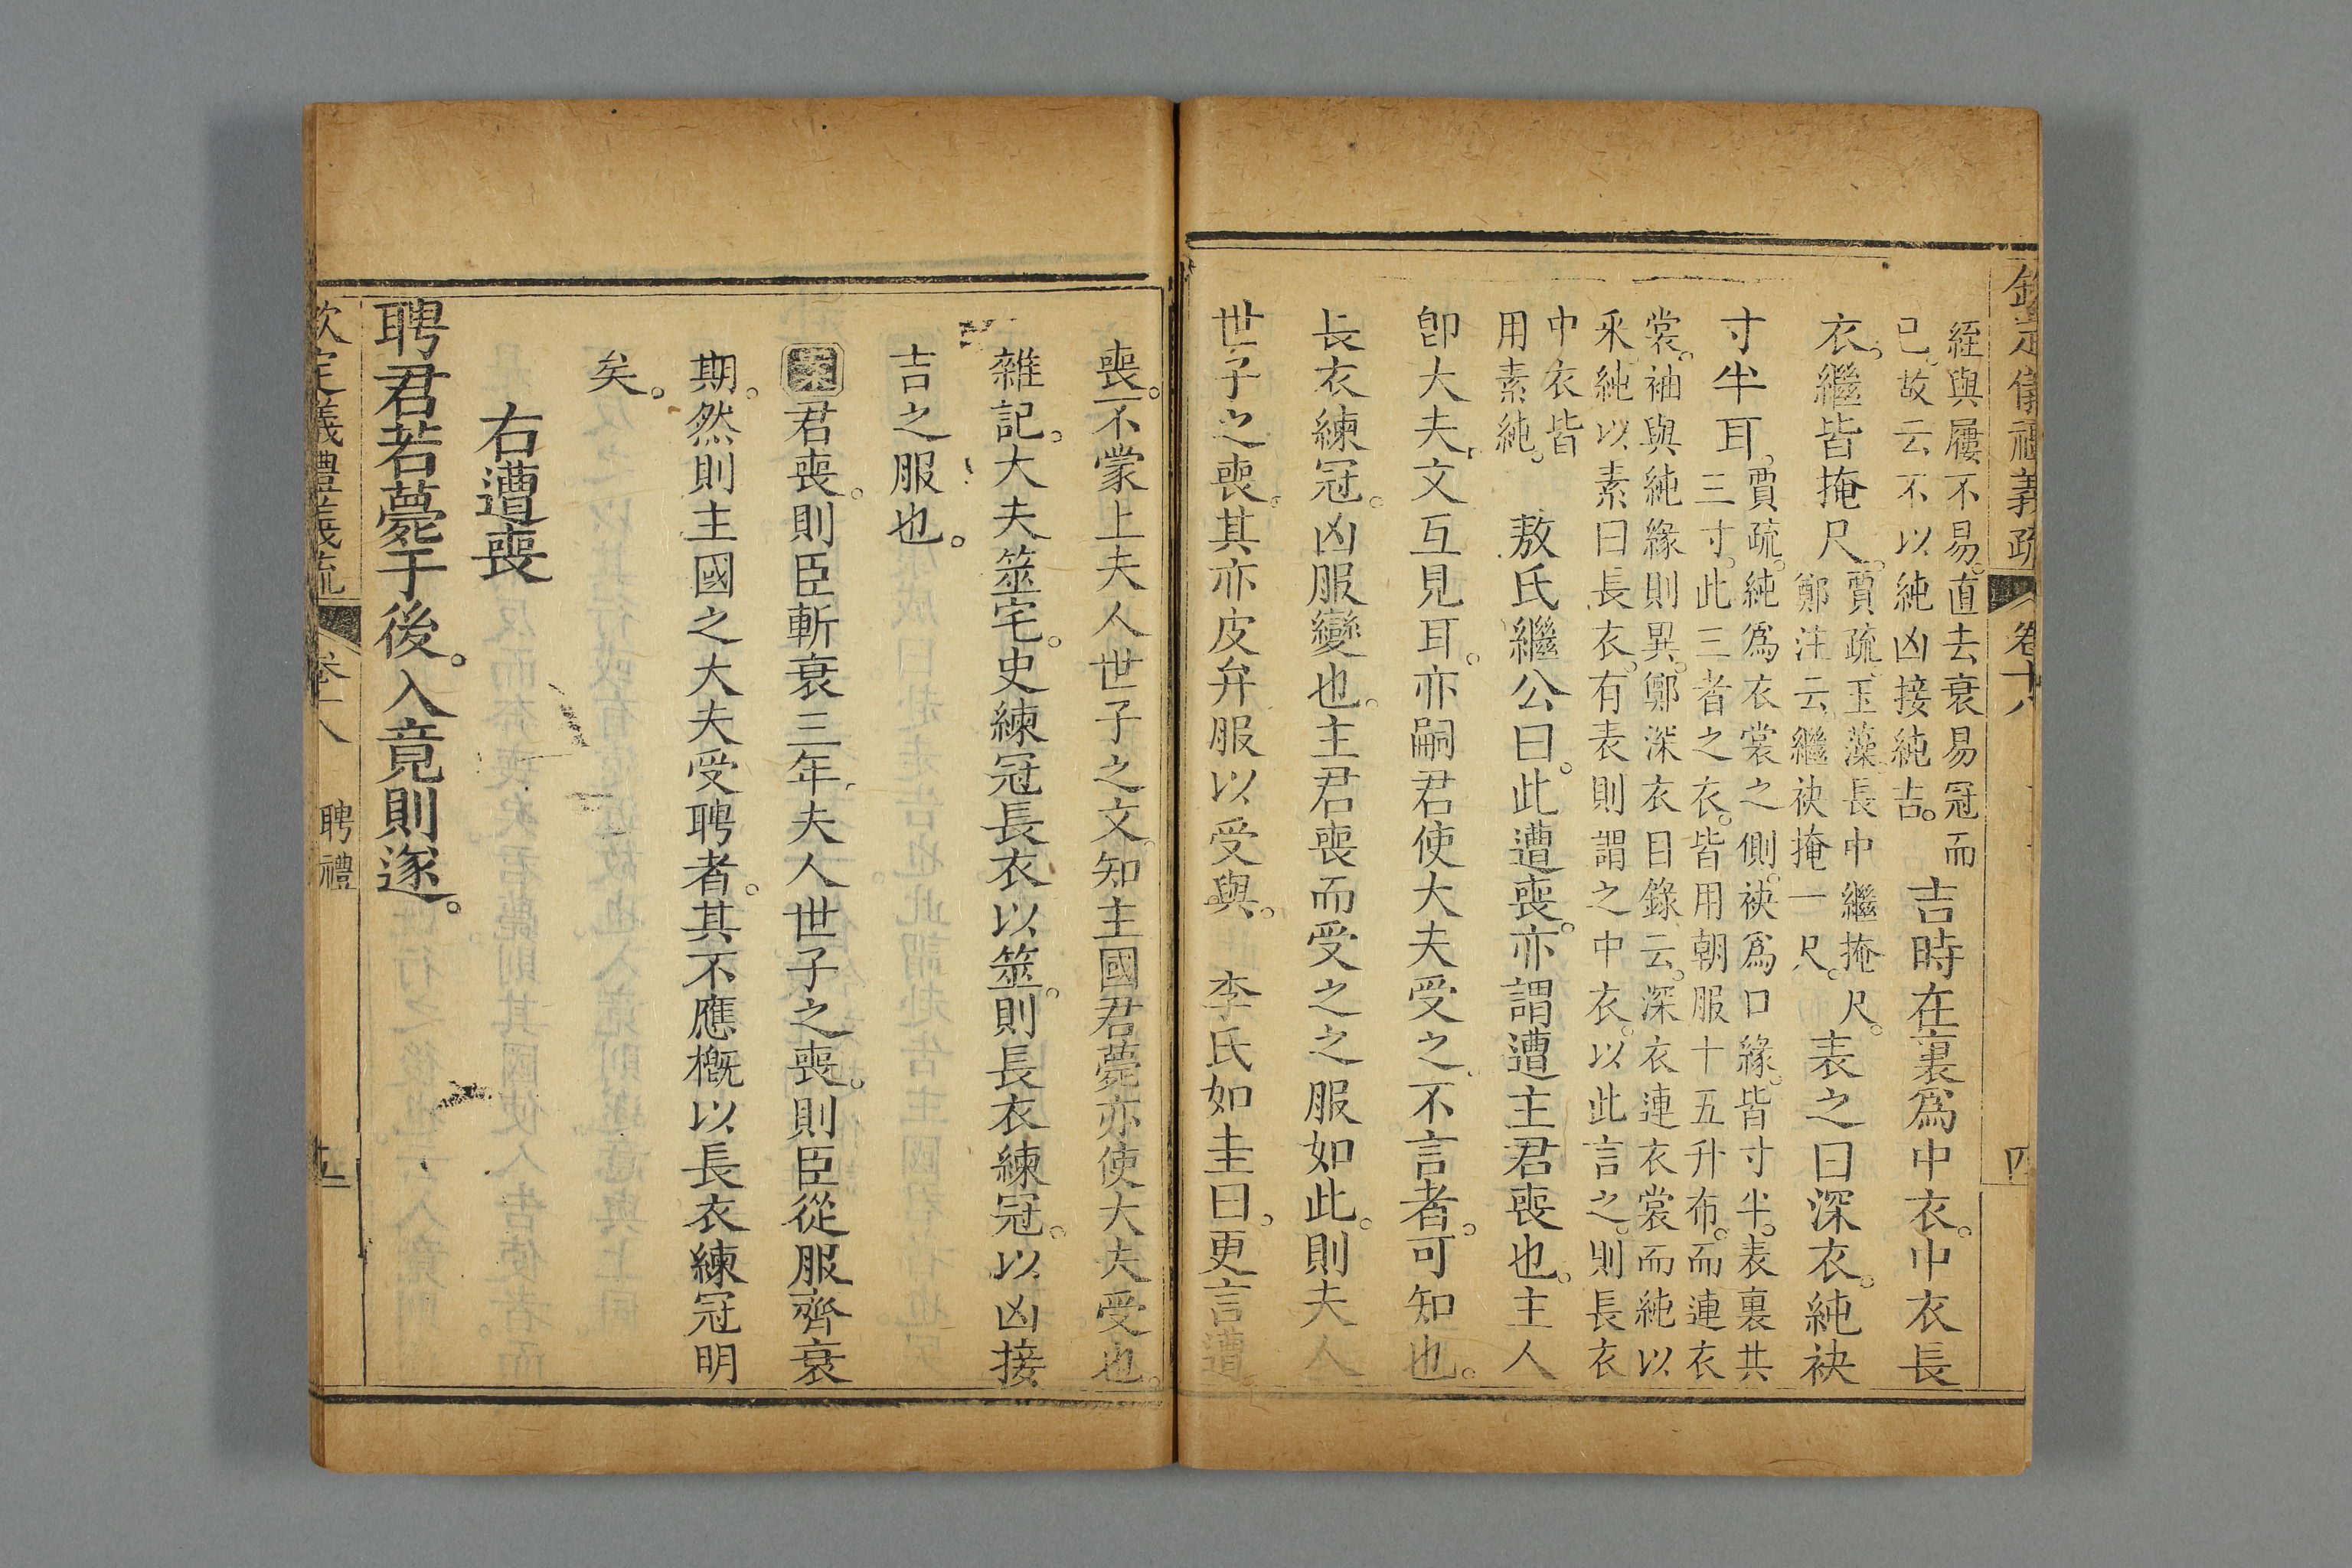 欽定儀禮義疏 卷十八 四
絰與屨不易。直去衰易冠而
已。故云不以純凶接純吉。
吉時在裏爲中衣。中衣長
衣。繼皆掩尺。
賈疏。玉藻長中繼掩尺。
鄭注云。繼袂掩一尺。
表之曰深衣。純袂
寸半耳。
賈疏。純爲衣裳之側。袂爲口緣。皆寸半。表裏共
三寸。此三者之衣。皆用朝服十五升布。而連衣
裳。袖與純緣則異。鄭深衣目錄云。深衣連衣裳而純以
采。純以素曰長衣。有表則謂之中衣。以此言之。則長衣
中衣皆
用素純。
敖氏繼公曰。此遭喪。亦謂遭主君喪也。主人
卽大夫。文互見耳。亦嗣君使大夫受之。不言者。可知也。
長衣練冠。凶服變也。主君喪而受之之服如此。則夫人
世子之喪。其亦皮弁服以受與。李氏如圭曰。更言遭
喪。不蒙上夫人世子之文。知主國君薨亦使大夫受也。
雜記。大夫筮宅。史練冠長衣以筮。則長衣練冠。以凶接
吉之服也。
案君喪。則臣斬衰三年。夫人世子之喪。則臣從服齊衰
期。然則主國之大夫受聘者。其不應槪以長衣練冠明
矣。
右遭喪
聘君若薨于後。入竟則遂。
欽定儀禮義疏 卷十八 聘禮 五